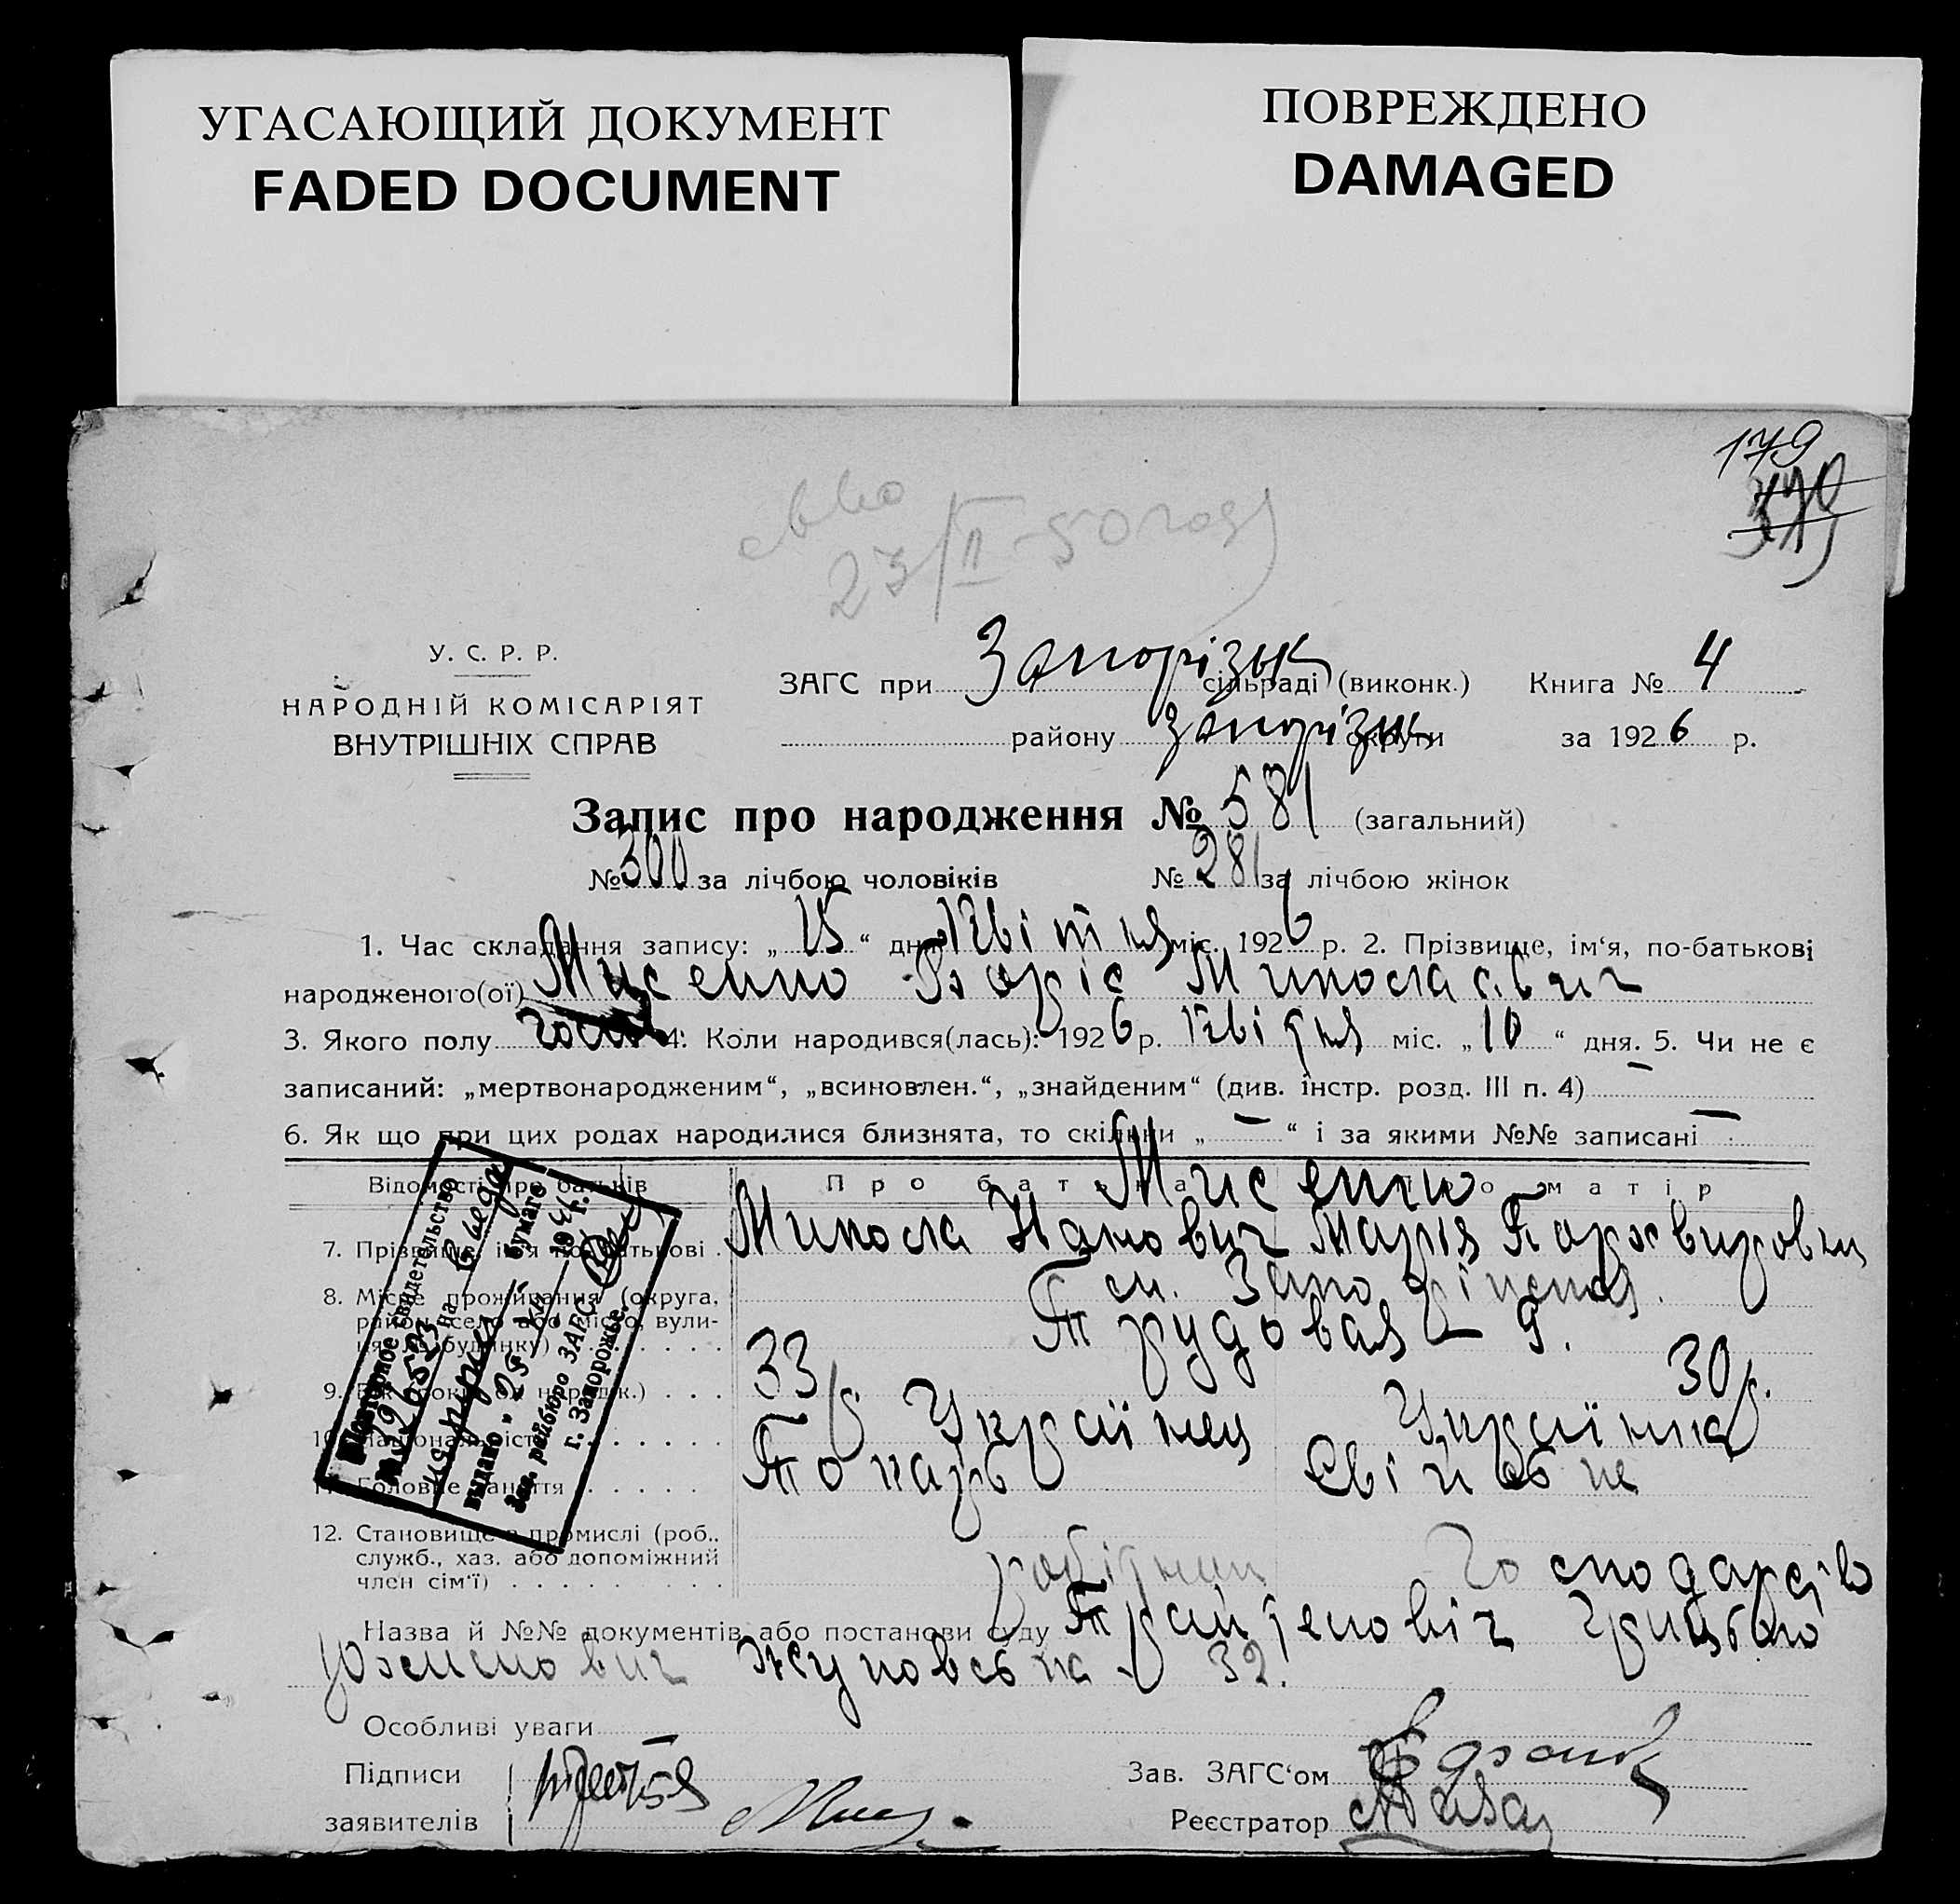 УГАСАЮЩИЙ ДОКУМЕНТ
FADED DOCUMENT
ПОВРЕЖДЕНО
DAMAGED
179
379
23/II-50 года
У. С. Р. Р.
НАРОДНІЙ КОМІСАРІЯТ
ВНУТРІШНІХ СПРАВ
ЗАГС при Запорізьк сільраді (виконк.) Книга № 4
району Запорізьк округи за 1926 р.
Запис про народження № 581 (загальний)
№ 300 за лічбою чоловіків № 281 за лічбою жінок
1. Час складання запису: „15“ дня Квітня міс. 1926 р. 2. Прізвище, ім‘я, по-батькові
народженого(ої) Мисенко Боріс Миколаєвич
3. Якого полу чолов 4. Коли народився(лась): 1926 р. Квітня міс. „10“ дня. 5. Чи не є
записаний: „мертвонародженим“, „всиновлен.“, „знайденим“ (див. інстр. розд. III п. 4) –
6. Як що при цих родах народилися близнята, то скільки „–“ і за якими №№ записані –
Відомості про батьків Про батька Про матір
Мисенко
7. Прізвище, ім‘я по-батькові Микола Іванович Марія Пархвировна
8. Місце проживання (округа, район, село або місто, вулиця, № будинку) ст. Запоріжжя
Трудовая 9.
9. Вік (років од народж.) 33 р. 30 р.
10. Національність Українец Українка
11. Головне заняття Токарь Свійське
12. Становище в промислі (роб.. служб., хаз. або допоміжний член сім‘ї) робітник господарство
Повторное свидетельство
на
выдано „25“
бумаге
Зав. райбюро ЗАГС
г. Запорожье.
Назва й №№ документів або постанови суду
Жуковська 32.
Особливі уваги –
Підписи
заявителів
Зав. ЗАГС‘ом
Реєстратор